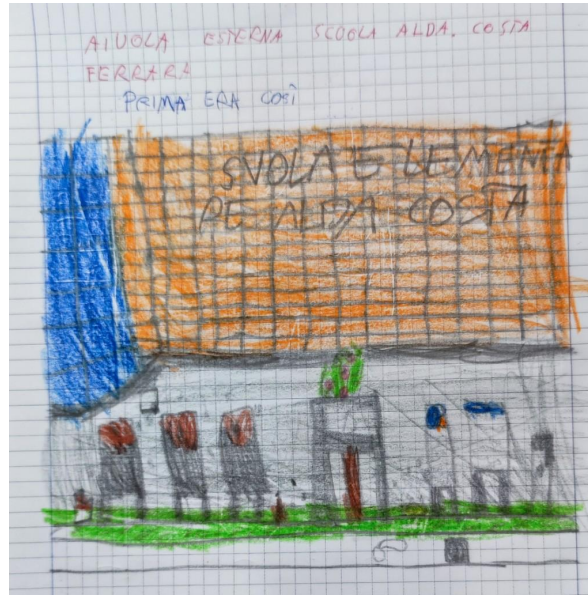 AIUOLA ESTERNA SCUOLA ALDA. COSTA
FERRARA
PRIMA ERA COSÌ
SVOLA E LEMENTA
DE ALDA COSTA